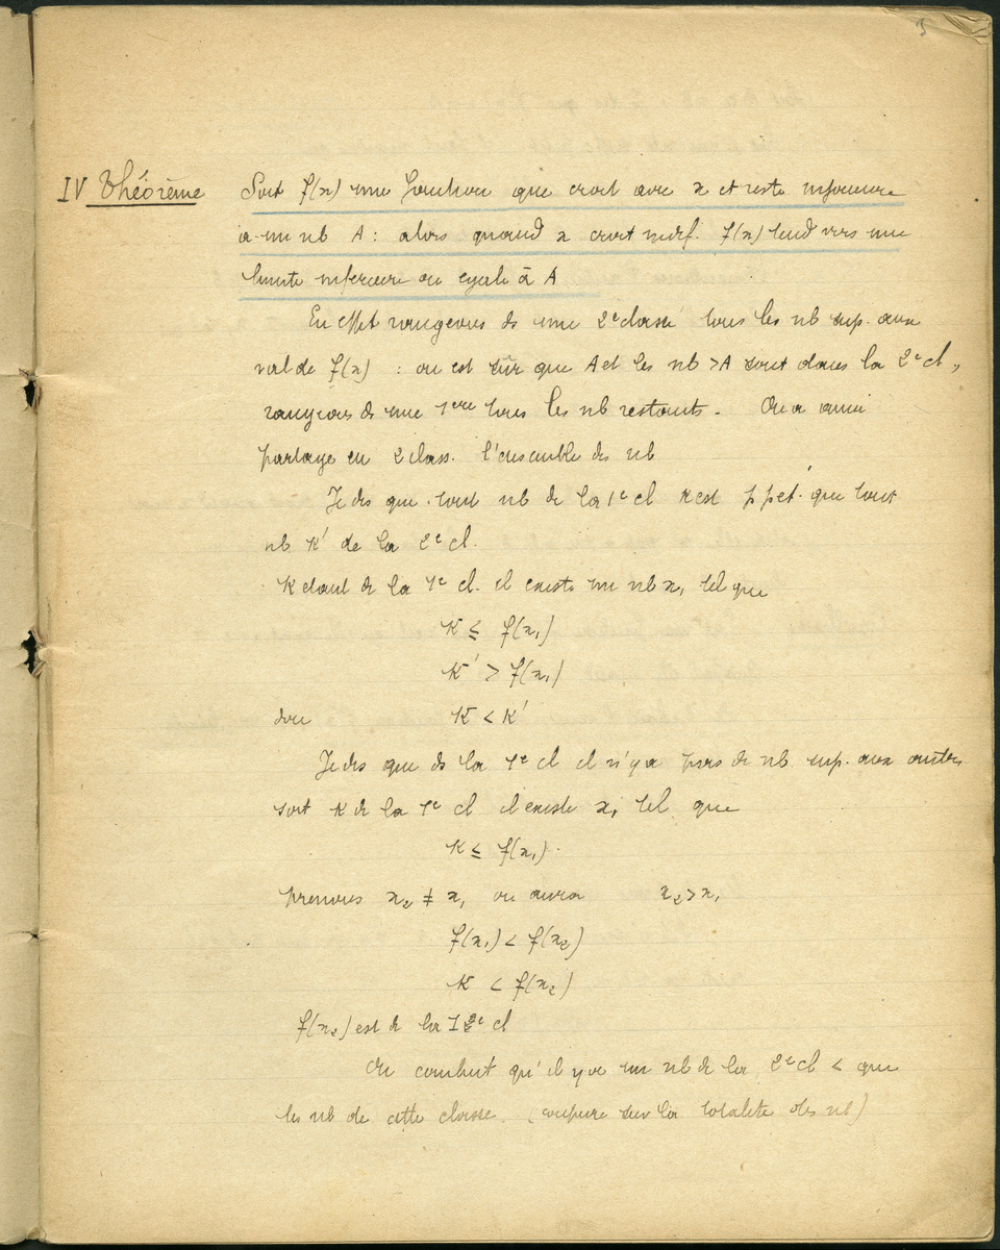 5
IV Théorème Soit f(x) une fonction qui croit avec x et reste inferieure
a un nb A : alors quand x croit indéf. f(x) tend vers une
limite inferieure ou egale à A
En effet rangeons ds une 2e classe tous les nb sup. aux
val de f(x) : on est sûr que A et les nb > A sont dans la 2e cl,
rangeons ds une 1ere tous les nb restants. On a ainsi
partage en 2 class. l'ensemble des nb
Je dis que tout nb de la 1e cl K est p pet. que tout
nb K' de la 2e cl.
K etant de la 1e cl. il existe un nb x₁ tel que
K ≤ f(x₁)
K' > f(x₁)
donc K < K'
Je dis que ds la 1e cl il n'y a pas de nb sup. aux autres
soit K de la 1e cl il existe x₁ tel que
K ≤ f(x₁).
prenons x₂ ≠ x₁ on aura x₂ > x₁
f(x₁) < f(x₂)
K < f(x₂)
f(x₂) est de la 1e cl
On conclut qu'il y a un nb de la 2e cl < que
les nb de cette classe. (coupure sur la totalite des nb)